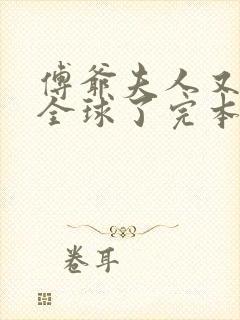 傅爺夫人又
全球了完本
卷耳